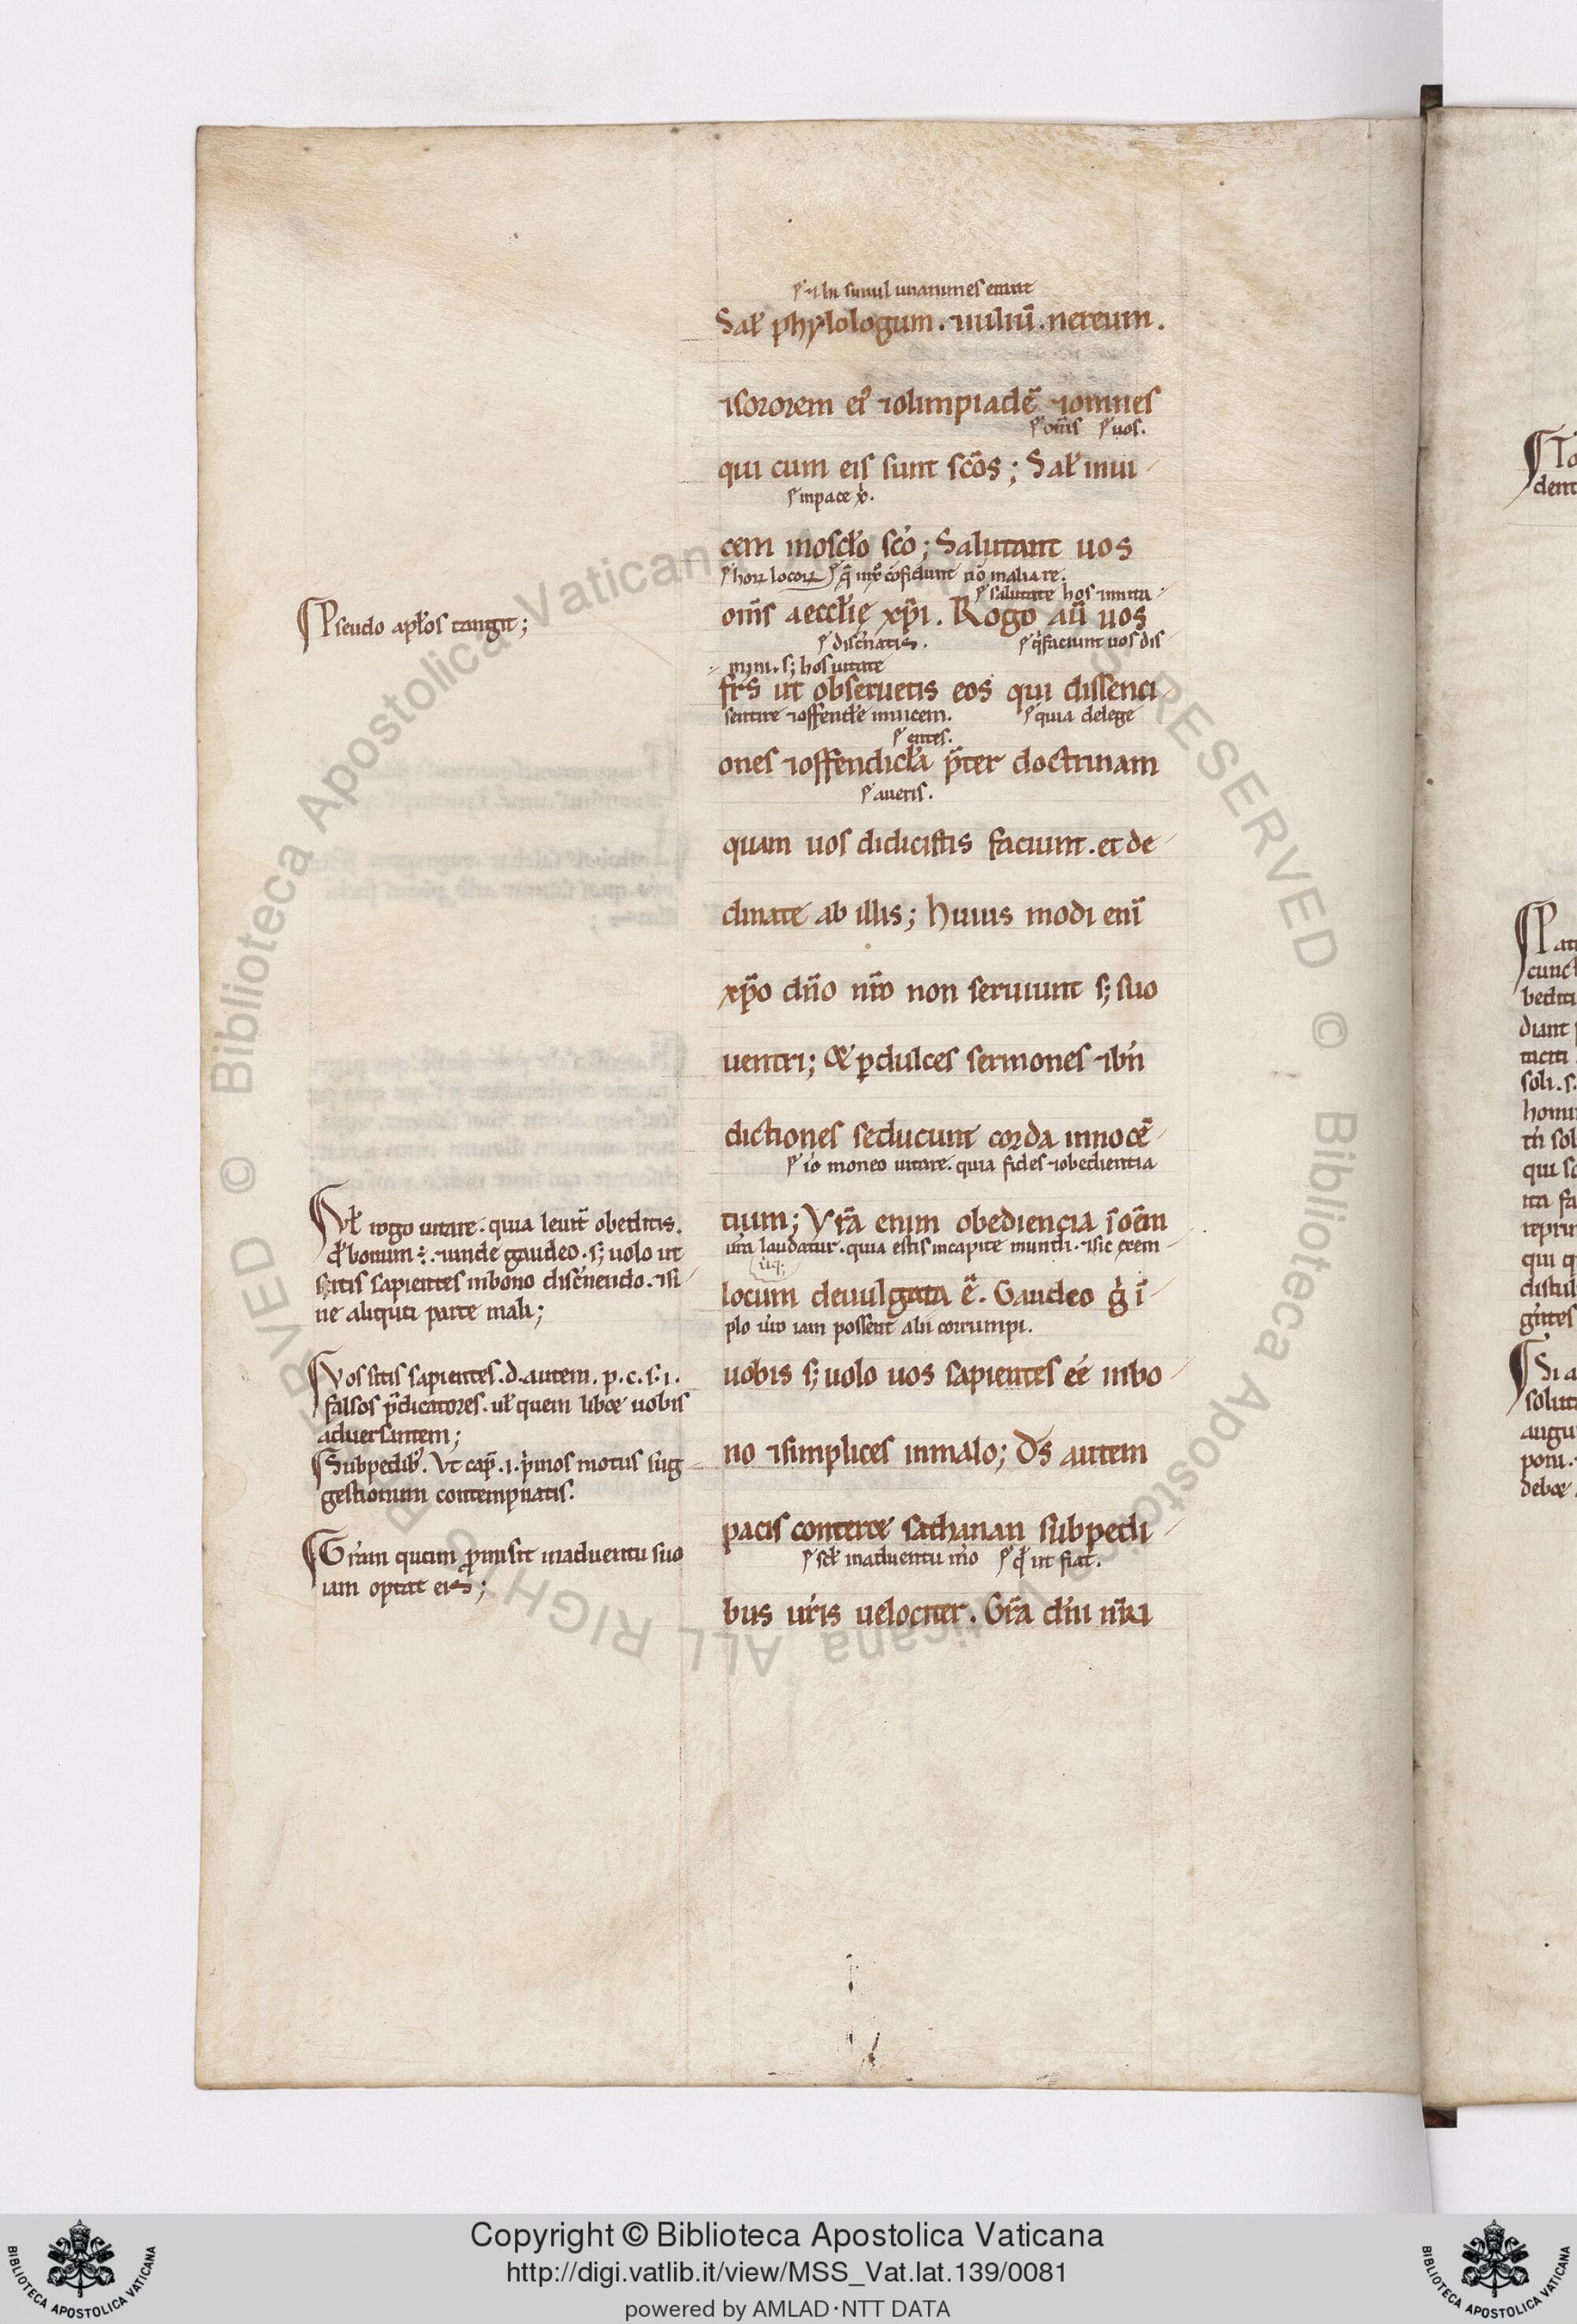 Sal' phylologum . ⁊ iuliū . nereum .
⁊ sororem ei' ⁊ olimpiadē ⁊ omnes
s' om̄s s' uos .
qui cum eis sunt sc̄os ; Sal' inui
s' in pace x̄ .
cem in oscl'o sc̄o ; Salutant uos
s' salutate hos ⁊ imita
om̄s aeccl'ię xp̄i . Rogo aū uos
s' disc'natis . s' q̄ faciunt uos dis
mini . s; hos uitate
fr̄s ut obseruetis eos qui dissenci
sentire ⁊ offend'e inuicem . s' quia de lege
s' entes .
ones ⁊ offendicl'a p̄ter doctrinam
s' auetis .
quam uos didicistis faciunt . et de
clinate ab illis ; Huius modi enī
xp̄o dn̄o nr̄o non seruiunt s; suo
uentri ; & p dulces sermones ⁊ bn̄
dictiones seducunt corda innocē
s' iō moneo uitare . quia fides ⁊ obedientia
tium ; Vr̄a enim obediencia ī oēm
ur̄a laudatur . quia estis in capite mundi . ⁊ sic exem
locum deuulgata ē . Gaudeo g̊ ī
plo ur̄o iam possent alii corrumpi .
uobis s; uolo uos sapientes eē in bo
no ⁊ simplices in malo ; Ds̄ autem
pacis conteret sathanan sub pedi
bus ur̄is uelociter . Gr̄a dn̄i nr̄i
Pseudo apl'os tangit ;
Vł rogo uitare . quia leuit' obeditis .
qd' bonum ÷ . ⁊ unde gaudeo . s; uolo ut
sitis sapientes in bono disc'nendo . ⁊ si
ne aliqua parte mali ;
Vos sitis sapientes . d . autem . p . c . s . i .
falsos p̄dicatores . uł quem lib& uobis
aduersantem ;
Sub pedib' . Vt cap̄ . i . p'mos motus sug
gestionum contempnatis .
Gr̄am quam p̱misit in aduentu suo
iam optat eis ;
Copyright © Biblioteca Apostolica Vaticana
http://digi.vatlib.it/view/MSS_Vat.lat.139/0081
powered by AMLAD·NTT DATA
BIBLIOTECA APOSTOLICA VATICANA
BIBLIOTECA APOSTOLICA VATICANA